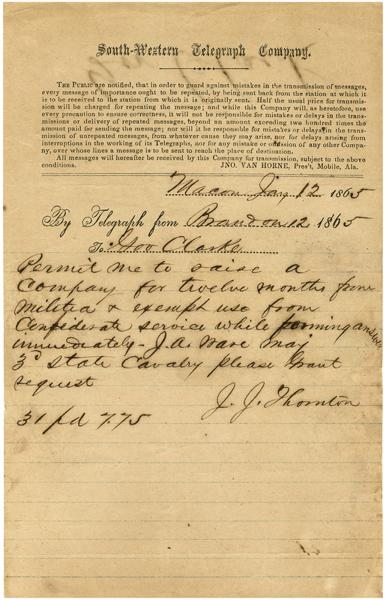 South-Western Telegraph Company.
THE PUBLIC are notified, that in order to guard against mistakes in the transmission of messages,
every message of importance ought to be repeated, by being sent back from the station at which it
is to be received to the station from which it is originally sent. Half the usual price for transmis-
sion will be charged for repeating the message; and while this Company will, as heretofore, use
every precaution to ensure correctness, it will not be responsible for mistakes or delays in the trans-
missions or delivery of repeated messages, beyond an amount exceeding two hundred times the
amount paid for sending the message; nor will it be responsible for mistakes or delays in the trans-
mission of unrepeated messages, from whatever cause they may arise, nor for delays arising from
interruptions in the working of its Telegraphs, nor for any mistake or omission of any other Compa-
ny, over whose lines a message is to be sent to reach the place of destination.
All messages will hereafter be received by this Company for transmission, subject to the above
conditions. JNO. VAN HORNE, Pres't, Mobile, Ala.
Macon Jany 12 1865
By Telegraph from Brandon 12 1865
To Gov Clarke
Permit me to raise a
Company for twelve months from
militia & exempt use from
Confederate service while forming
immediately - J. A. Ware may
3d State Cavalry please Grant
request
J. J. Thornton
31 pd 7.75